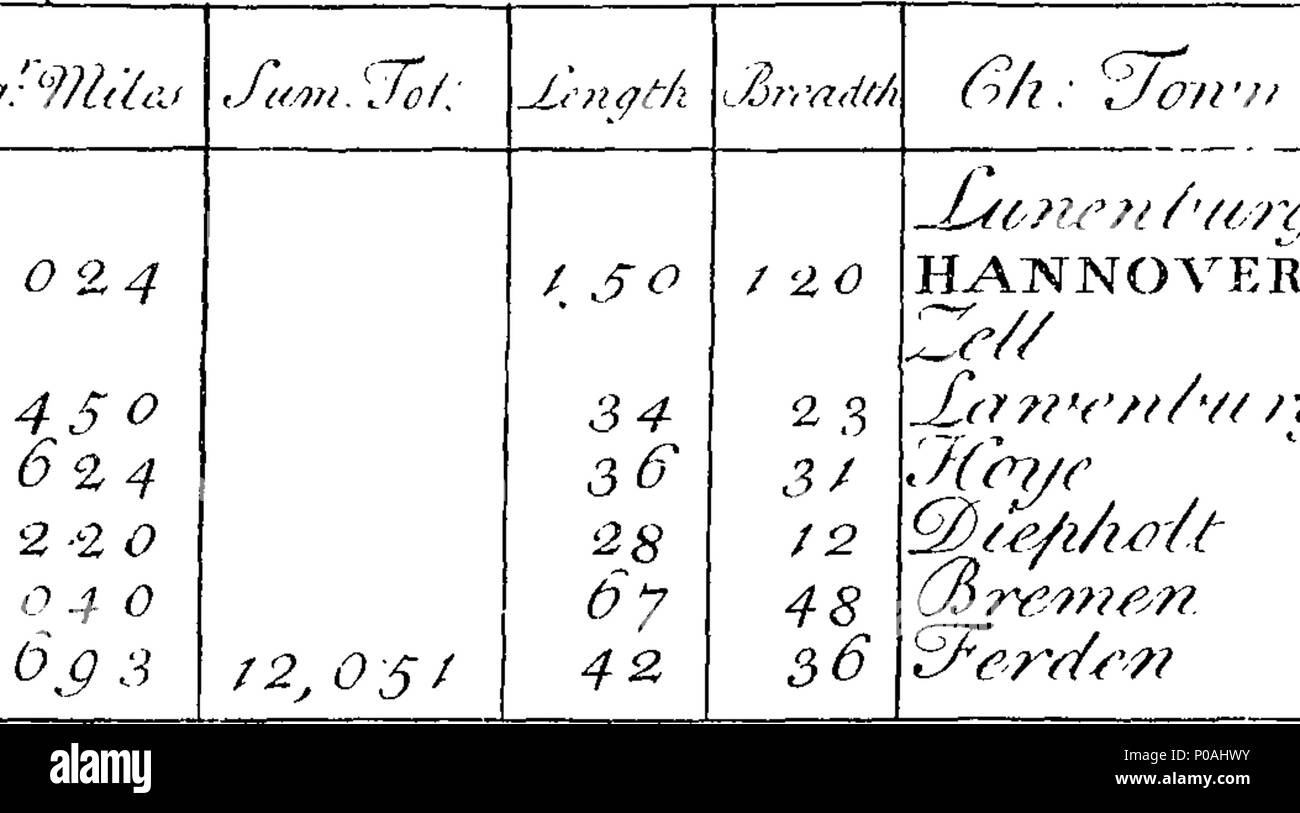 qr. Miles Sum. Tot: Length Breadth Ch: Town
Lunenburg
024 1.50 120 HANNOVER
Zell
450 34 23 Lawenburg
624 36 31 Hoye
220 28 12 Diepholt
040 67 48 Bremen
693 12,051 42 36 Ferden
alamy
Image ID: P0AHWY
www.alamy.com